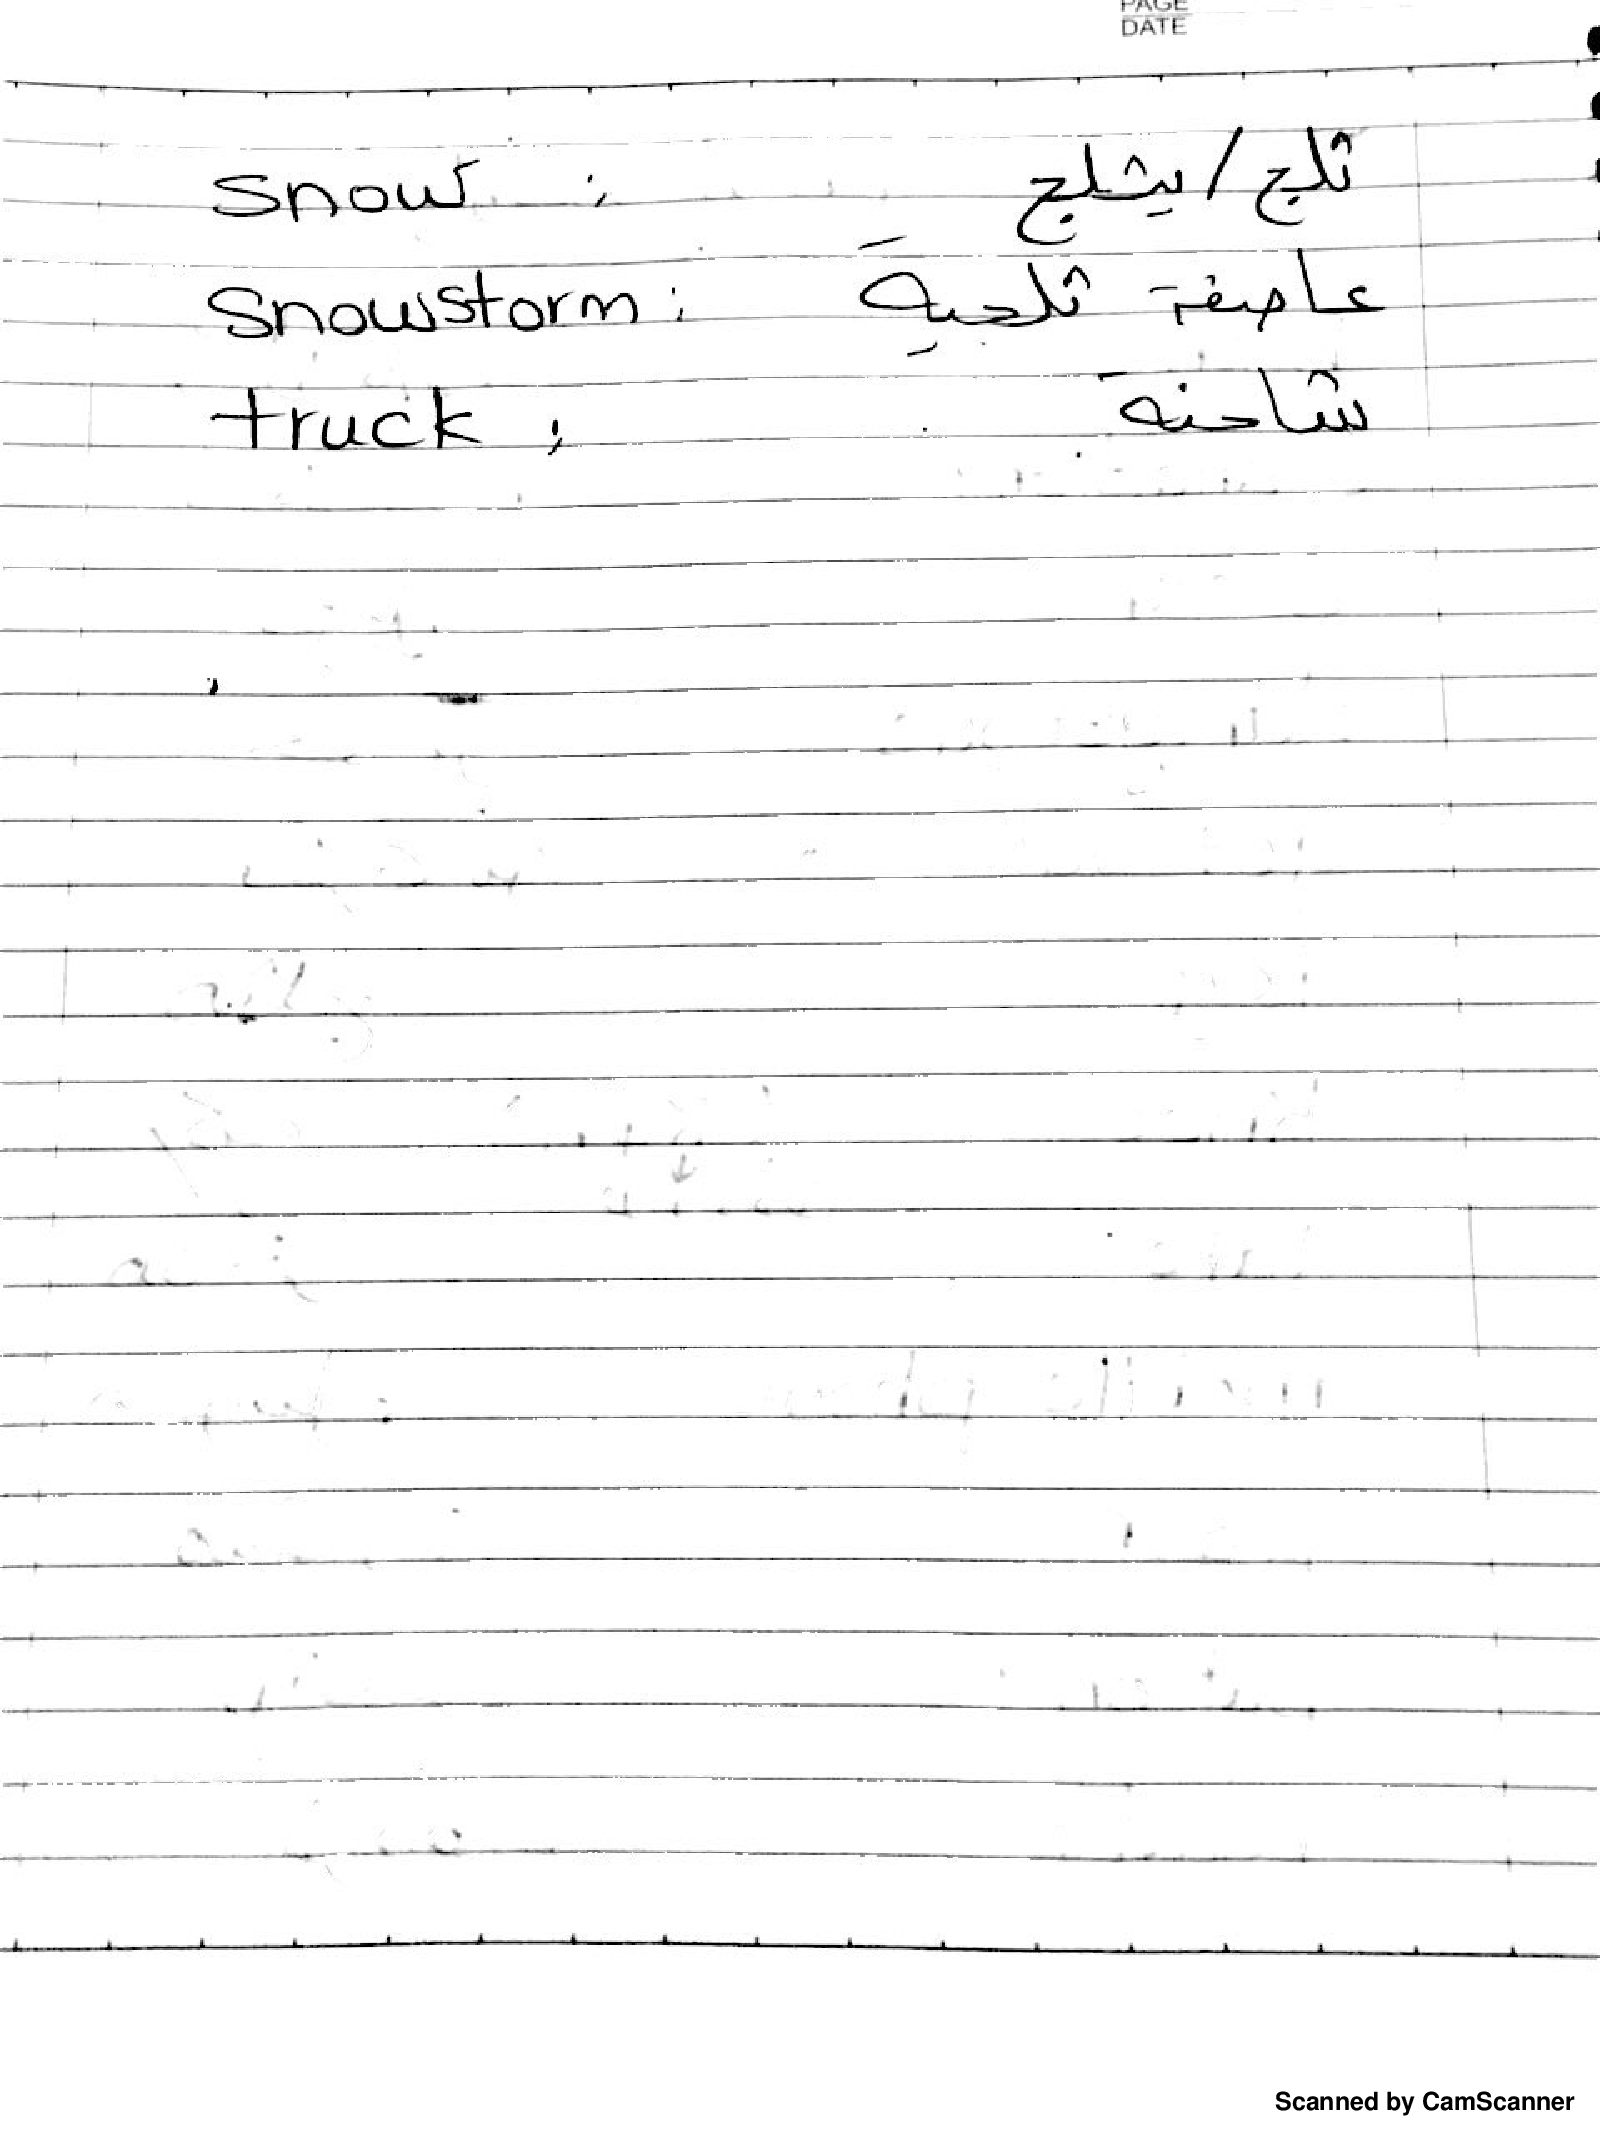 PAGE
DATE
snow : ثلج / يثلج
snowstorm : عاصفة ثلجية
truck : شاحنة
Scanned by CamScanner